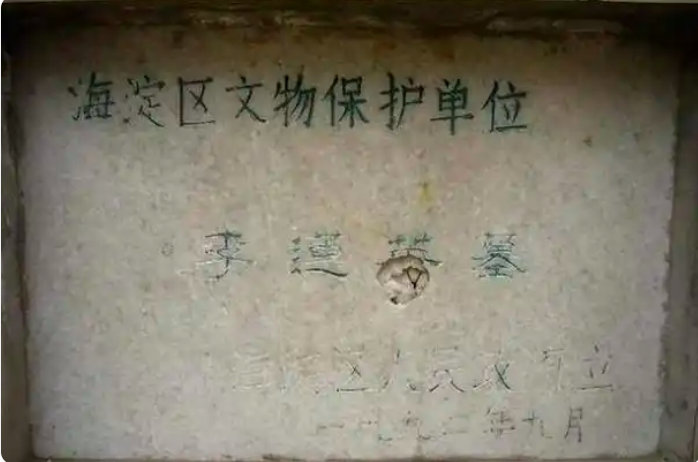 海淀区文物保护单位
李莲英墓
海淀区人民政府立
一九九二年九月